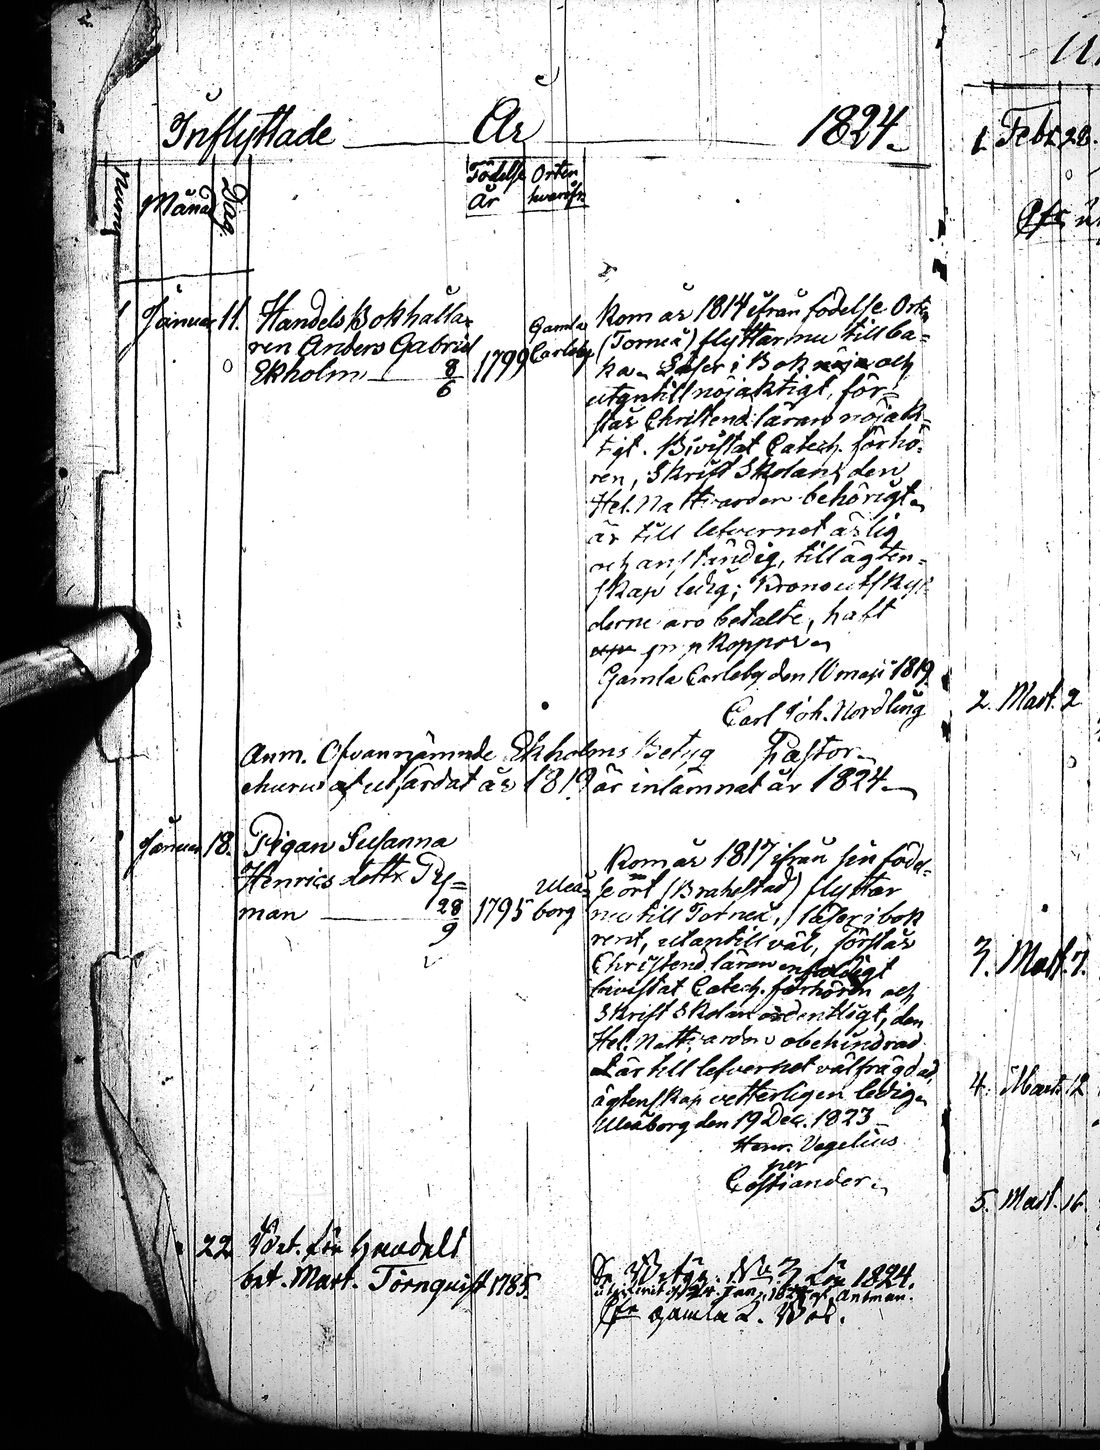 Inflyttade År 1824.
Månad
Dag.
Födelse År
Orten hvarifr.
1 Januar 11. Handels Bokhålla-
ren Anders Gabriel
Ekholm 8/6 1799 Gamla Carleby
Kom år 1814 ifrån födelse Orten
(Torneå) flyttar nu tillba-
ka. Läser i Bok nöja och
utantill nöjaktigt, för-
står Christend: läran nöjak-
tigt. Bivistat Catech. förhö-
ren, Skrift Skolan, den
Hel. Nattvarden behörigt.
är till lefvernet ärlig
och anständig, till ägten-
skap ledig; Kronoutskyl-
derne äro betalte, haft
Koppor.
Gamla Carleby den 10 maji 1819.
Carl Joh. Nordling
Pastor
Anm. Ofvannämnde Ekholms Betyg
ehuru utfärdat år 1819 är inlämnat år 1824.
Januar 18. Pigan Susanna
Henrics dottr Ry-
man 28/9 1795 Uleå-
borg
Kom år 1817 ifrån sin födel-
se ort (Brahestad) flyttar
nu till Torneå, läser i bok
rent, utantill väl, förstår
Christend läran enfaldigt
bevistat Catech. förhören och
Skrift Skolan ordentligt, den
Hel. Nattvarden obehindrad
är till lefvernet välfrägdad,
ägtenskap vetterligen ledig.
Uleåborg den 19 Dec. 1823
Henr. Vegelius
per
Costiander.
22 för
Mart. Törnquist 1785.
Se Betyg. No 3 för 1824.
24. Jan.
Cfr gamla
1. Febr 28.
2. Mart. 2
3. Mart. 7.
4. Mart. 12
5. Mart. 16.